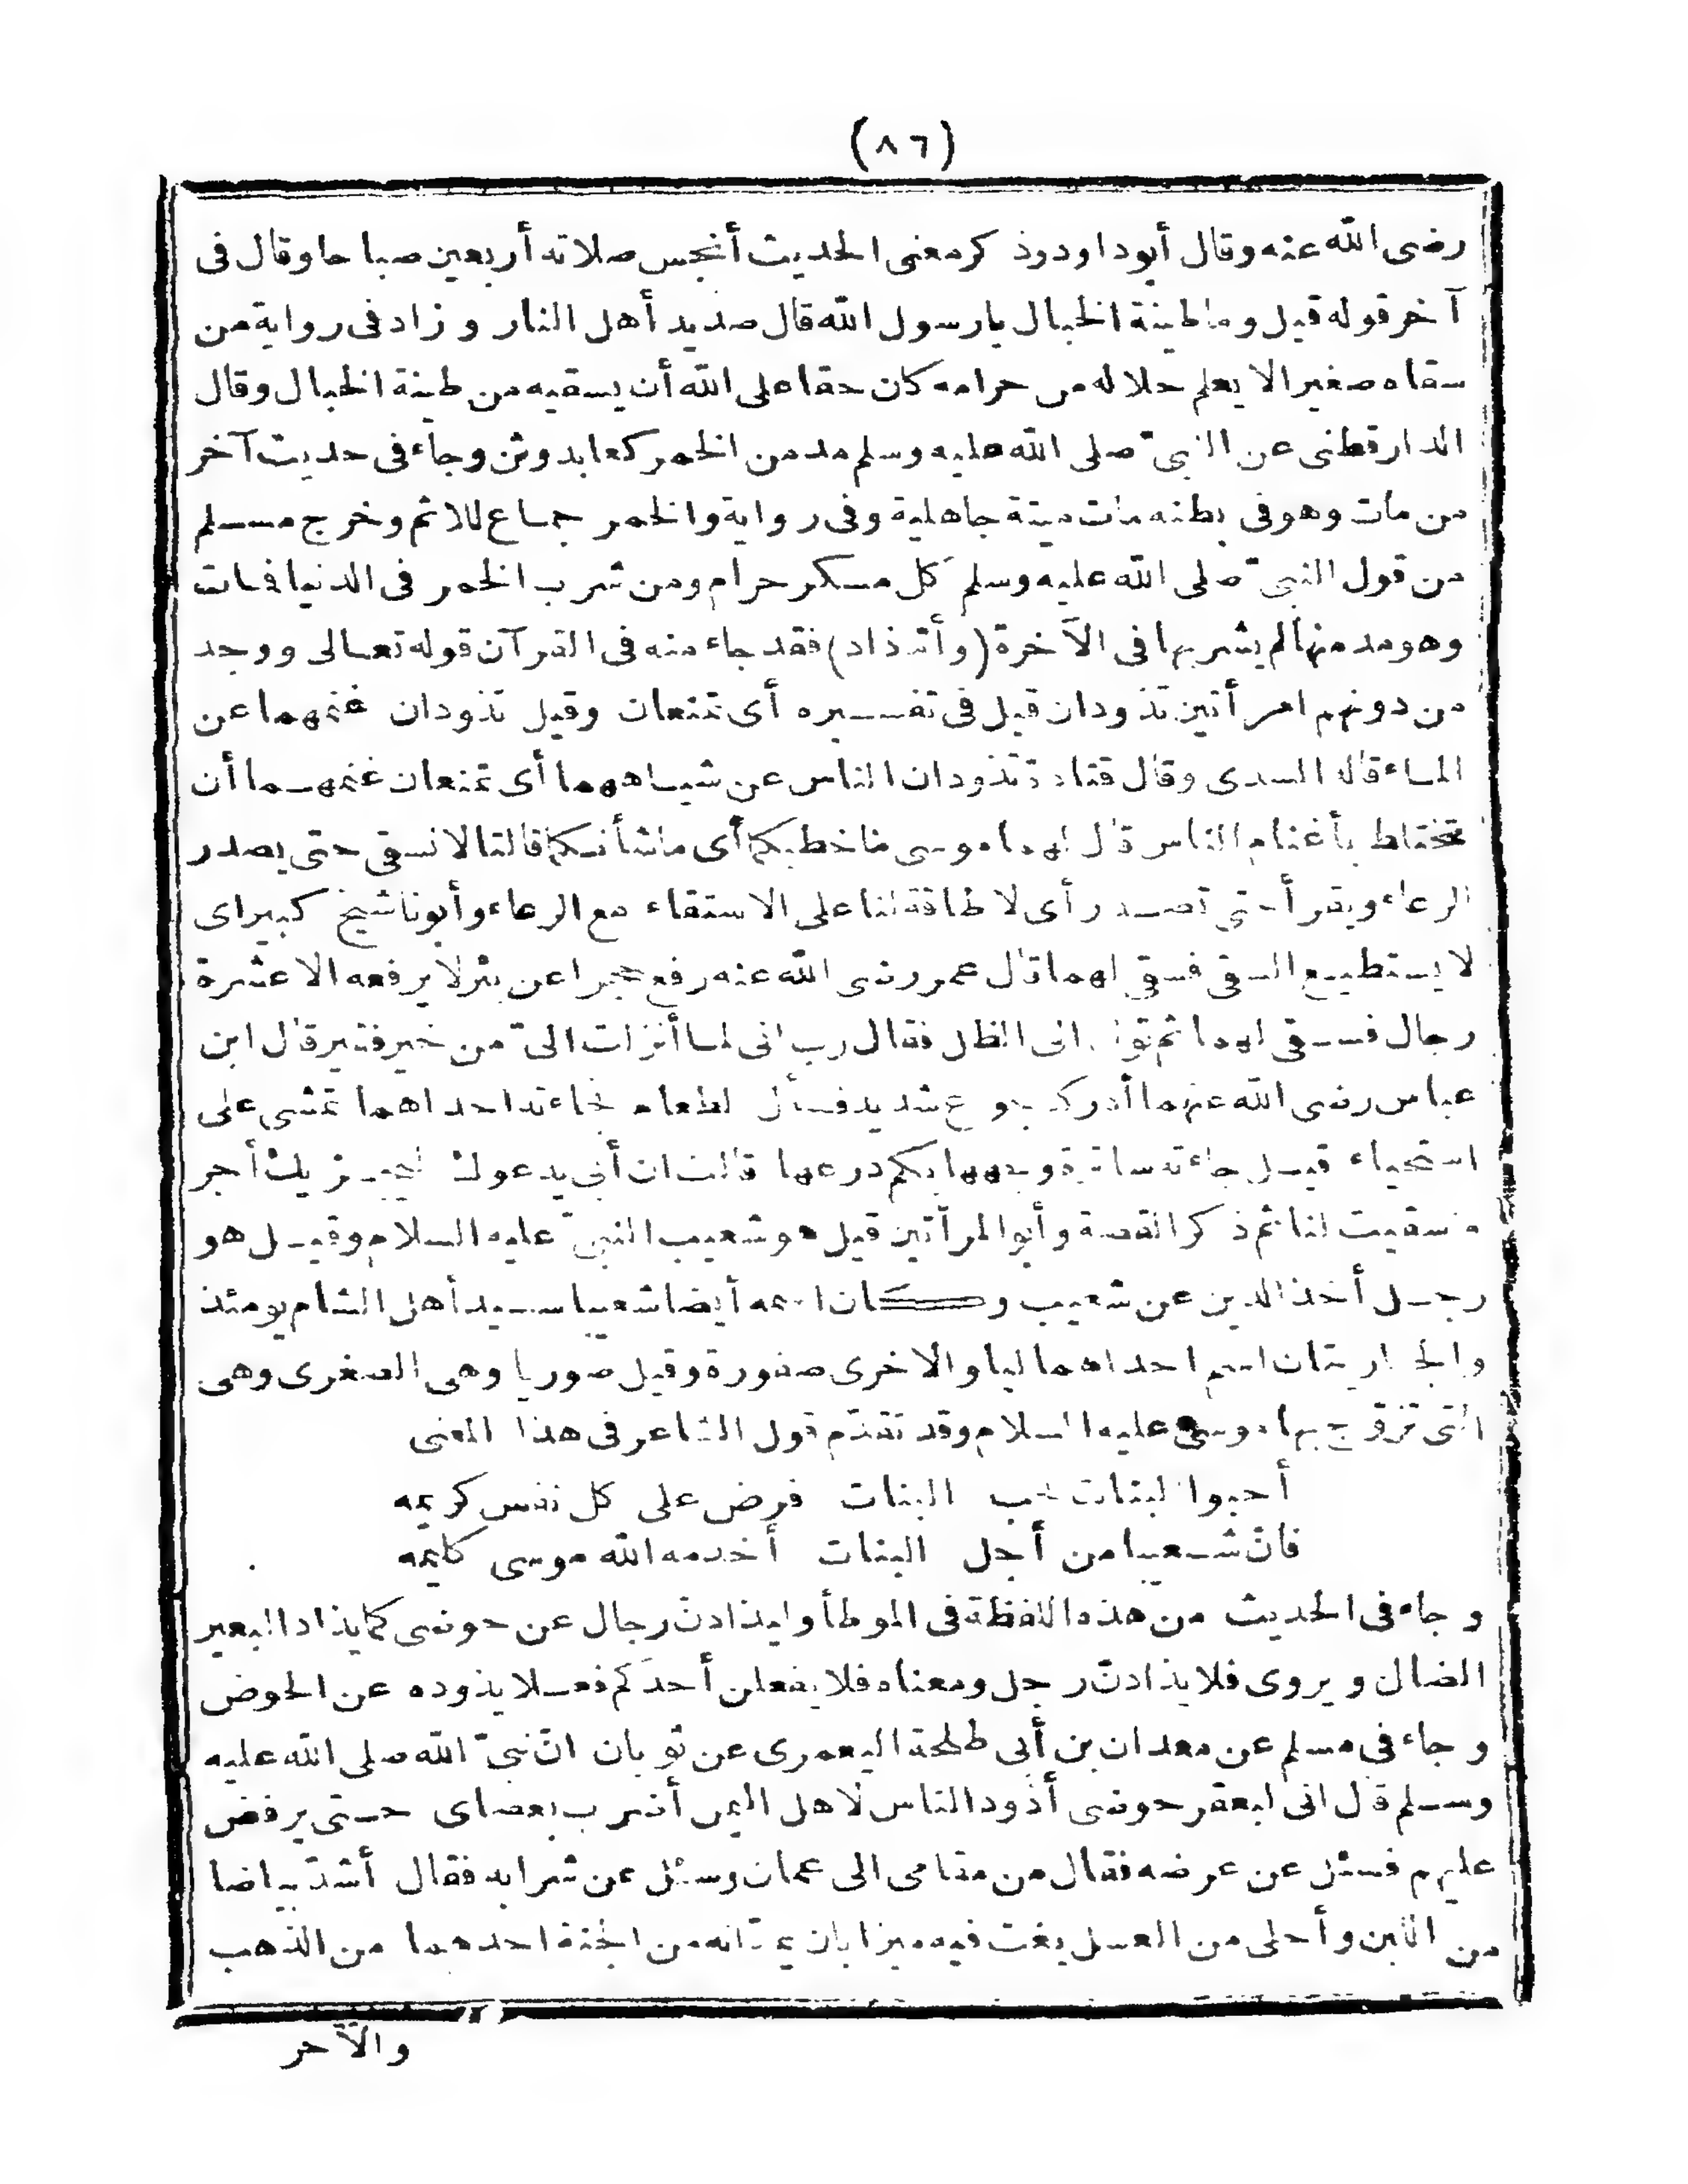 (٨٦)
رضى الله عنه وقال أبوداود وذكر معنى الحديث أنجس صلاته أربعين صباحا وقال فى
آخر قوله قيل وما طينة الخبال يارسول الله قال صديد أهل النار وزاد فى رواية من
سقاه صغيرا لا يعلم حلاله من حرامه كان حقا على الله أن يسقيه من طينة الخبال وقال
الدارقطنى عن النبىّ صلى الله عليه وسلم مدمن الخمر كعابد وثن وجاء فى حديث آخر
من مات وهو فى بطنه مات ميتة جاهلية وفى رواية والخمر جماع للاثم وخرج مسلم
من قول النبىّ صلى الله عليه وسلم كل مسكر حرام ومن شرب الخمر فى الدنيا فمات
وهو مدمنها لم يشربها فى الآخرة (وأتذاد) فقد جاء منه فى القرآن قوله تعالى ووجد
من دونهم امرأتين تذودان قيل فى تفسيره أى تمنعان وقيل تذودان غنمهما عن
الماء قاله السدى وقال قتادة تذودان الناس عن شياههما أى تمنعان غنمهما أن
تختلط بأغنام الناس قال لهما موسى ما خطبكما أى ما شأنكما قالتا لا نسقى حتى يصدر
الرعاء ويقرأ حتى تصدر أى لا طاقة لنا على الاستقاء مع الرعاء وأبونا شيخ كبير اى
لا يستطيع السقى فسقى لهما قال عمر رضى الله عنه رفع حجرا عن بئر لا يرفعه الا عشرة
رجال فسقى لهما ثم تولى الى الظل فقال رب انى لما أنزلت الىّ من خير فقير قال ابن
عباس رضى الله عنهما أدركه جوع شديد فسأل لطعام فجاءته احداهما تمشى على
استحياء قيل جاءته ساترة وجهها بكم درعها قالت ان أبى يدعوك ليجزيك أجر
ما سقيت لنا ثم ذكر القصة وأبو المرأتين قيل هو شعيب النبىّ عليه السلام وقيل هو
رجل أخذ الدين عن شعيب وكان اسمه أيضا شعيبا سيد أهل الشام يومئذ
والجاريتان اسم احداهما ليا والاخرى صفورة وقيل صوريا وهى الصغرى وهى
التى تزوّج بها موسى عليه السلام وقد تقدّم قول الشاعر فى هذا المعنى
أحبوا البنات فحب البنات فرض على كل نفس كريمه
فانّ شعيبا من أجل البنات أخدمه الله موسى كليمه
وجاء فى الحديث من هذه اللفظة فى الموطأ وليذادنّ رجال عن حوضى كما يذاد البعير
الضال ويروى فلا يذادنّ رجل ومعناه فلا يفعلن أحدكم فعلا يذوده عن الحوض
وجاء فى مسلم عن معدان بن أبى طلحة اليعمرى عن ثوبان انّ نبىّ الله صلى الله عليه
وسلم قال انى لبعقر حوضى أذود الناس لاهل اليمن أضرب بعصاى حتى يرفض
عليهم فسئل عن عرضه فقال من مقامى الى عمان وسئل عن شرابه فقال أشدّ بياضا
من اللبن وأحلى من العسل يغت فيه ميزابان يمدّانه من الجنة احدهما من الذهب
والآخر